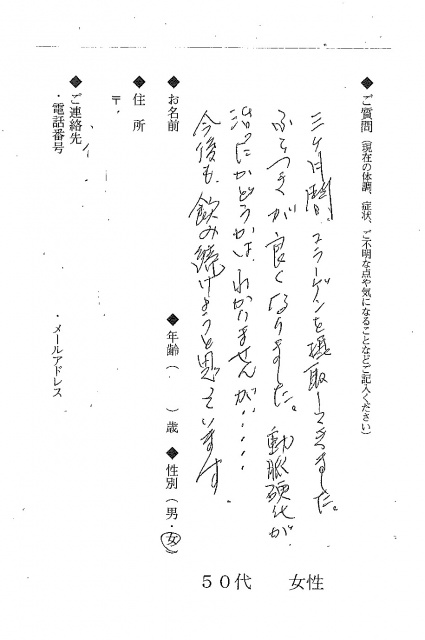 ◆ご質問（現在の体調、症状、ご不明な点や気になることなどご記入ください）
三ヶ月間、コラーゲンを摂取してきました。
ふらつきが良くなりました。動脈硬化が
治ったかどうかは、わかりませんが・・・・
今後も、飲み続けようと思っています。
◆お名前 ◆年齢（ ）歳 ◆性別（男・女）
◆住所
〒
◆ご連絡先
・電話番号 ・メールアドレス
５０代 女性